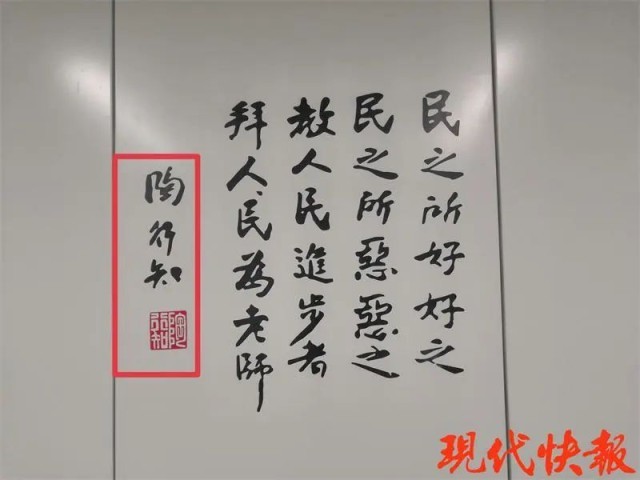 民之所好好之
民之所惡惡之
教人民進步者
拜人民為老師
陶行知
現代快報